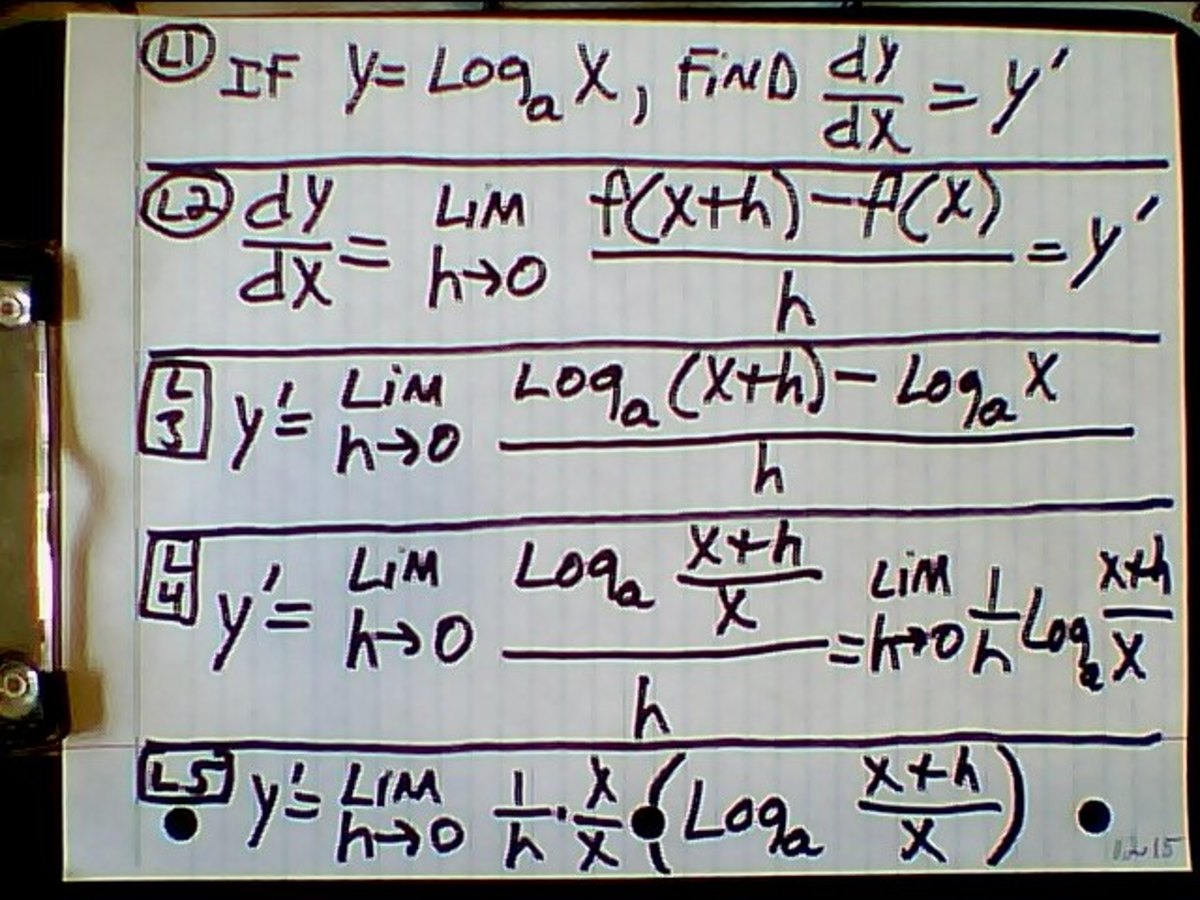 L1 IF y = Log_a X, FIND dy/dx = y'
L2 dy/dx = LIM h→0 f(x+h) - f(x) / h = y'
L3 y' = LIM h→0 Log_a (x+h) - Log_a X / h
L4 y' = LIM h→0 Log_a x+h/x / h = LIM h→0 1/h Log_a x+h/x
L5 y' = LIM h→0 1/h · x/x • (Log_a x+h/x)